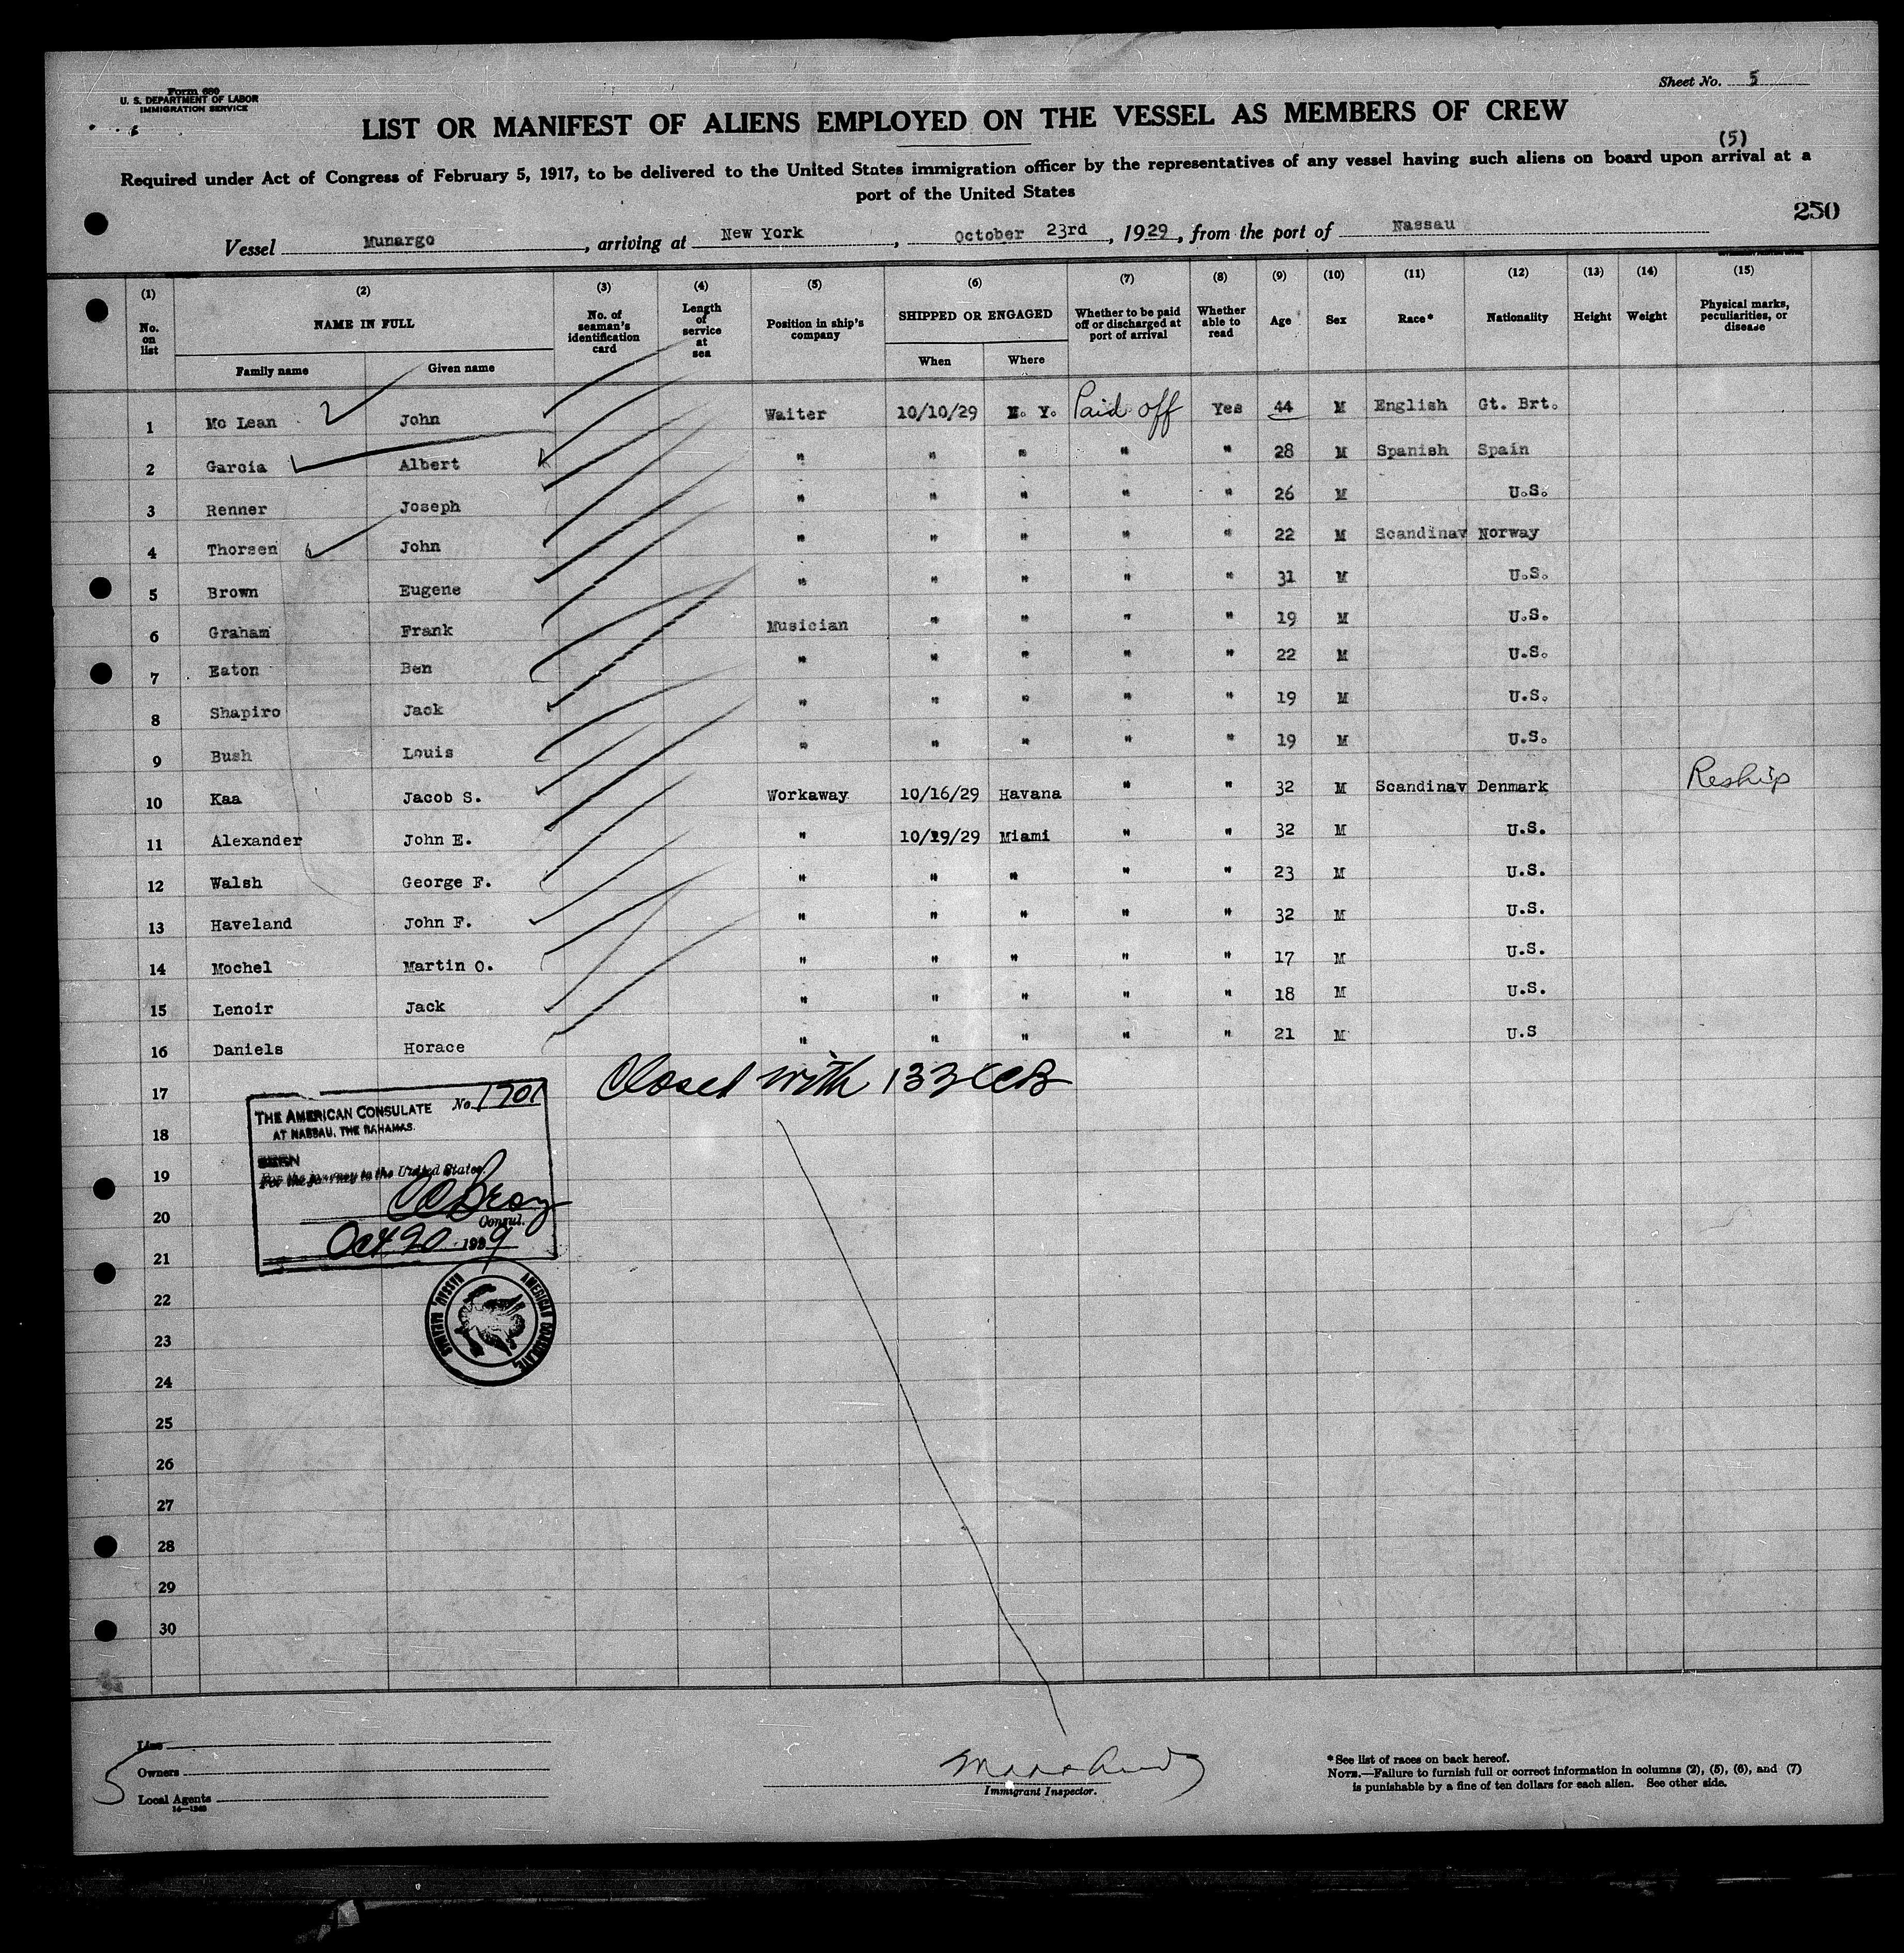 Form 680
U. S. DEPARTMENT OF LABOR
IMMIGRATION SERVICE
Sheet No. 5
LIST OR MANIFEST OF ALIENS EMPLOYED ON THE VESSEL AS MEMBERS OF CREW
(5)
Required under Act of Congress of February 5, 1917, to be delivered to the United States immigration officer by the representatives of any vessel having such aliens on board upon arrival at a
port of the United States
250
Vessel Munargo, arriving at New York, October 23rd, 1929, from the port of Nassau
(1) (2) (3) (4) (5) (6) (7) (8) (9) (10) (11) (12) (13) (14) (15)
No. on list NAME IN FULL Family name Given name No. of seaman's identification card Length of service at sea Position in ship's company SHIPPED OR ENGAGED When Where Whether to be paid off or discharged at port of arrival Whether able to read Age Sex Race* Nationality Height Weight Physical marks, peculiarities, or disease
1 Mc Lean John Waiter 10/10/29 N. Y. Paid off Yes 44 M English Gt. Brt.
2 Garcia Albert " " " " " 28 M Spanish Spain
3 Renner Joseph " " " " " 26 M U.S.
4 Thorsen John " " " " " 22 M Scandinav Norway
5 Brown Eugene " " " " " 31 M U.S.
6 Graham Frank Musician " " " " 19 M U.S.
7 Eaton Ben " " " " " 22 M U.S.
8 Shapiro Jack " " " " " 19 M U.S.
9 Bush Louis " " " " " 19 M U.S.
10 Kaa Jacob S. Workaway 10/16/29 Havana " " 32 M Scandinav Denmark Reship
11 Alexander John E. " 10/19/29 Miami " " 32 M U.S.
12 Walsh George F. " " " " " 23 M U.S.
13 Haveland John F. " " " " " 32 M U.S.
14 Mochel Martin O. " " " " " 17 M U.S.
15 Lenoir Jack " " " " " 18 M U.S.
16 Daniels Horace " " " " " 21 M U.S
17 Closed with 133
THE AMERICAN CONSULATE No. 1701
AT NASSAU, THE BAHAMAS.
18
SEEN
19
For the journey to the United States.
20
Consul.
Oct 20 1929
21
22
AMERICAN CONSULATE, NASSAU, BAHAMAS
23
24
25
26
27
28
29
30
Line
Owners
Local Agents
5
Immigrant Inspector.
*See list of races on back hereof.
NOTE.—Failure to furnish full or correct information in columns (2), (5), (6), and (7)
is punishable by a fine of ten dollars for each alien. See other side.